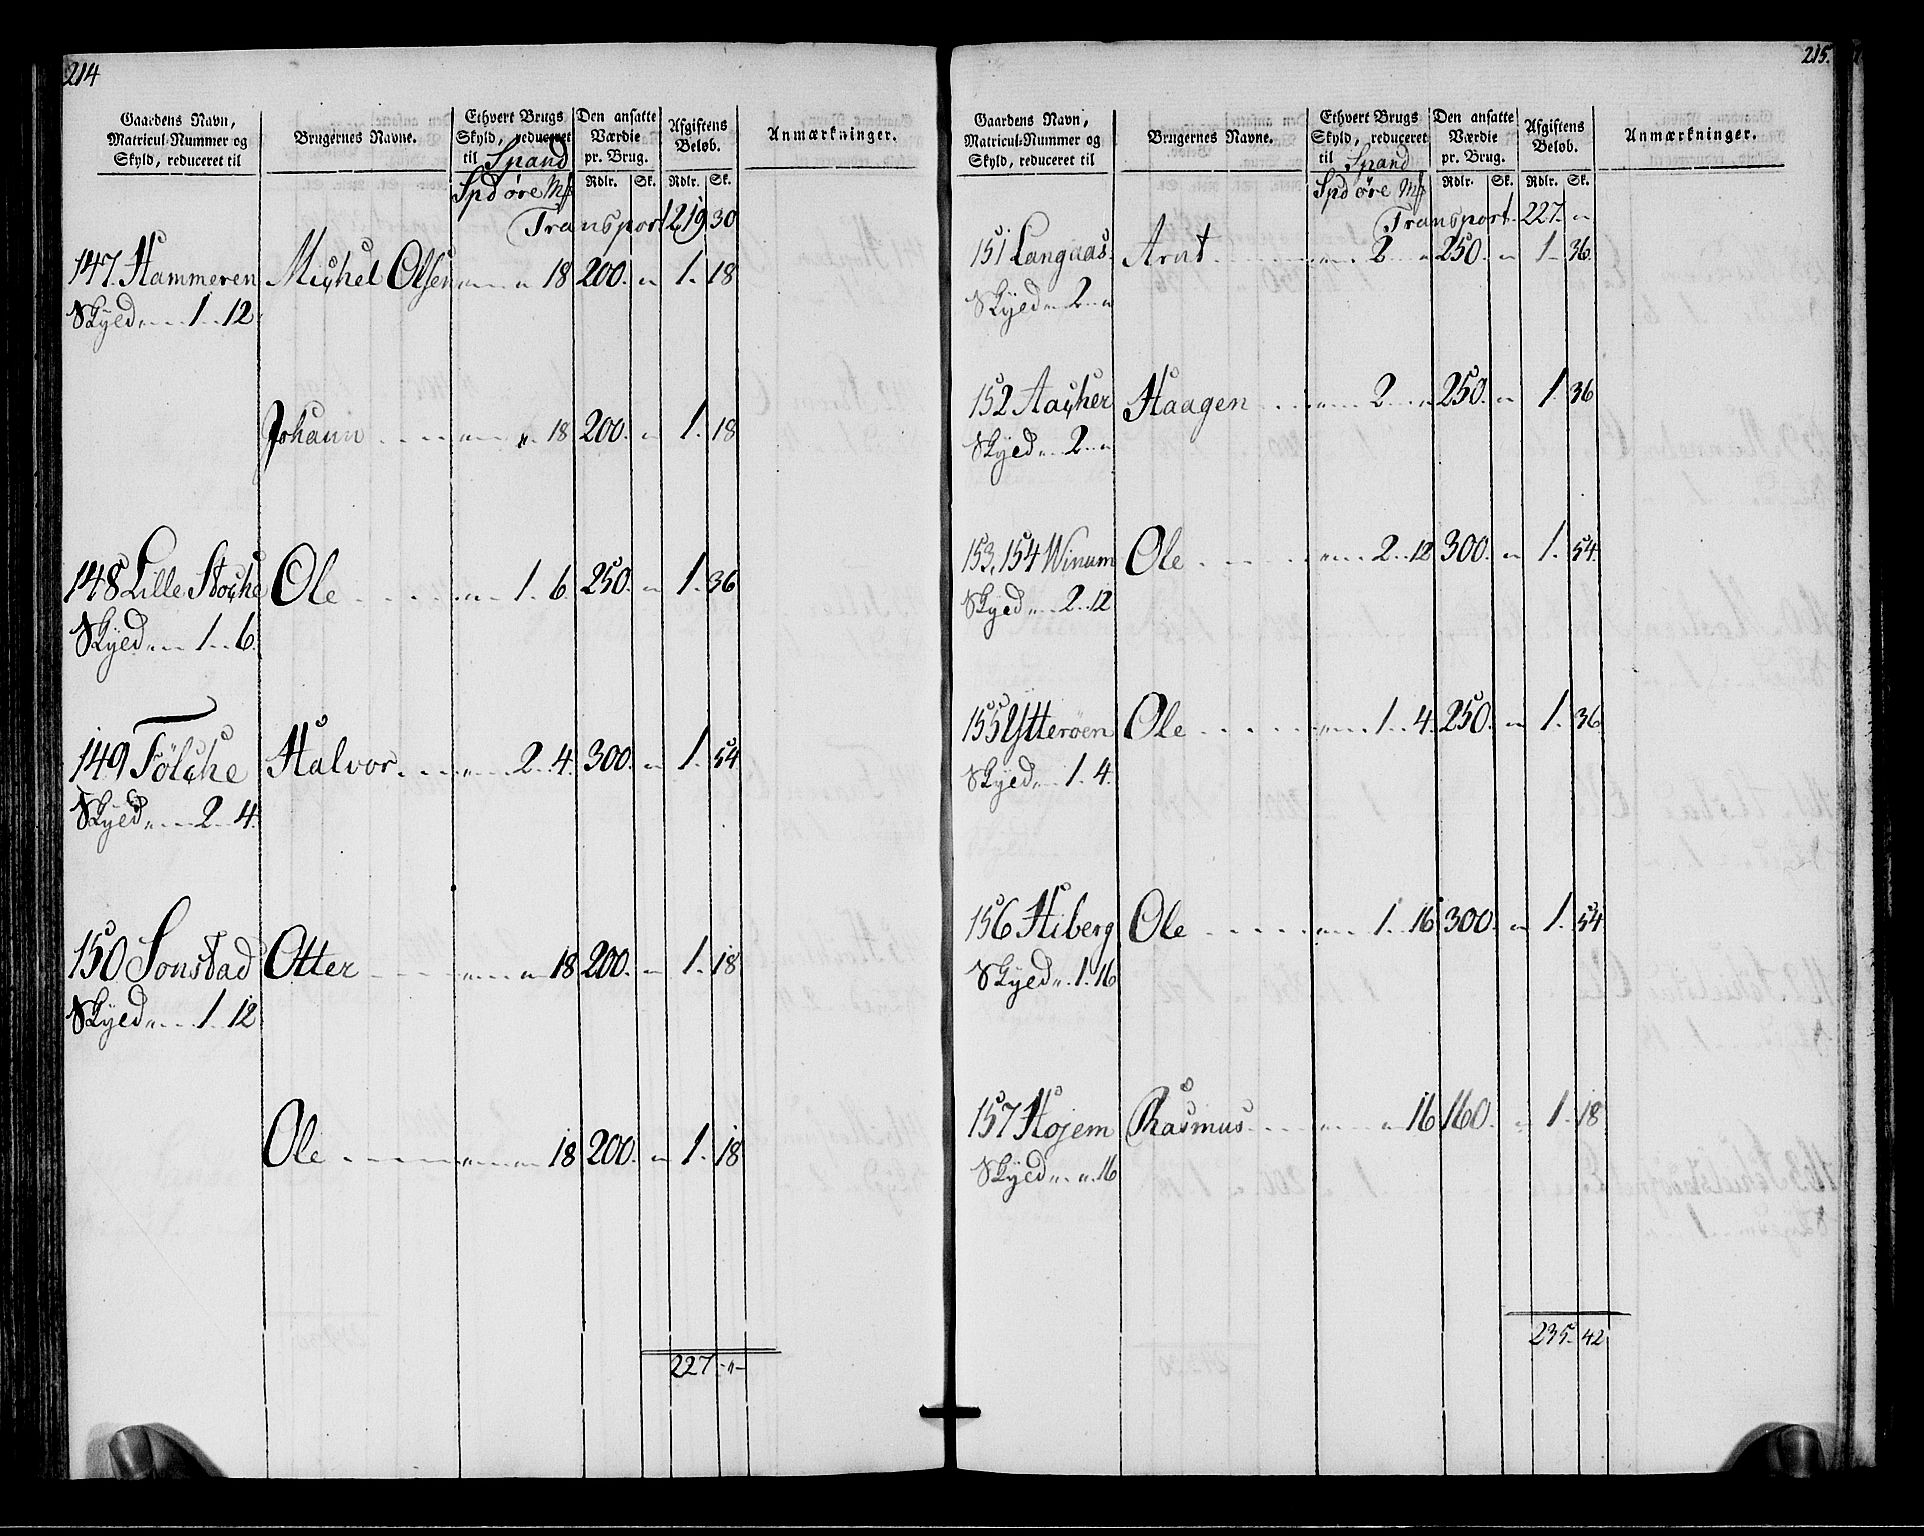 214
Gaardens Navn, Matricul-Nummer og Skyld, reduceret til
Brugernes Navne.
Ethvert Brugs Skyld, reduceret til Spand
Den ansatte Værdie pr. Brug.
Afgiftens Beløb.
Anmærkninger.
Spd öre Mk Rdlr. Sk. Rdlr. Sk.
Transport 219 30
147. Hammeren Michel Olsen " 18 200. " 1. 18
Skyed 1. 12.
Johann " 18 200. " 1. 18
148 Lille Stoche Ole " 1. 6. 250. " 1. 36
Skyed 1. 6.
149 Fölche Halvor " 2. 4. 300. " 1. 54
Skyed 2. 4.
150 Sonstad Otter " " 18 200. " 1. 18
Skyed 1. 12
Ole " " 18 200. " 1. 18
227. "
215.
Gaardens Navn, Matricul-Nummer og Skyld, reduceret til
Brugernes Navne.
Ethvert Brugs Skyld, reduceret til Spand
Den ansatte Værdie pr. Brug.
Afgiftens Beløb.
Anmærkninger.
Spd öre Mk Rdlr. Sk. Rdlr. Sk.
Transport 227. "
151 Langaas. Arnt " 2 " 250. " 1. 36.
Skyed " 2 "
152 Aacher Haagen " 2 " 250. " 1. 36
Skyed " 2 "
153, 154 Winum Ole " 2. 12 300. " 1. 54.
Skyed " 2. 12
155 Ytterøen Ole " 1. 4. 250. " 1. 36
Skyed 1. 4.
156 Hiberg Ole " 1. 16 300. " 1. 54
Skyed " 1. 16
157 Hojem Rasmus " " 16 160. " 1. 18
Skyed " " 16
235. 42